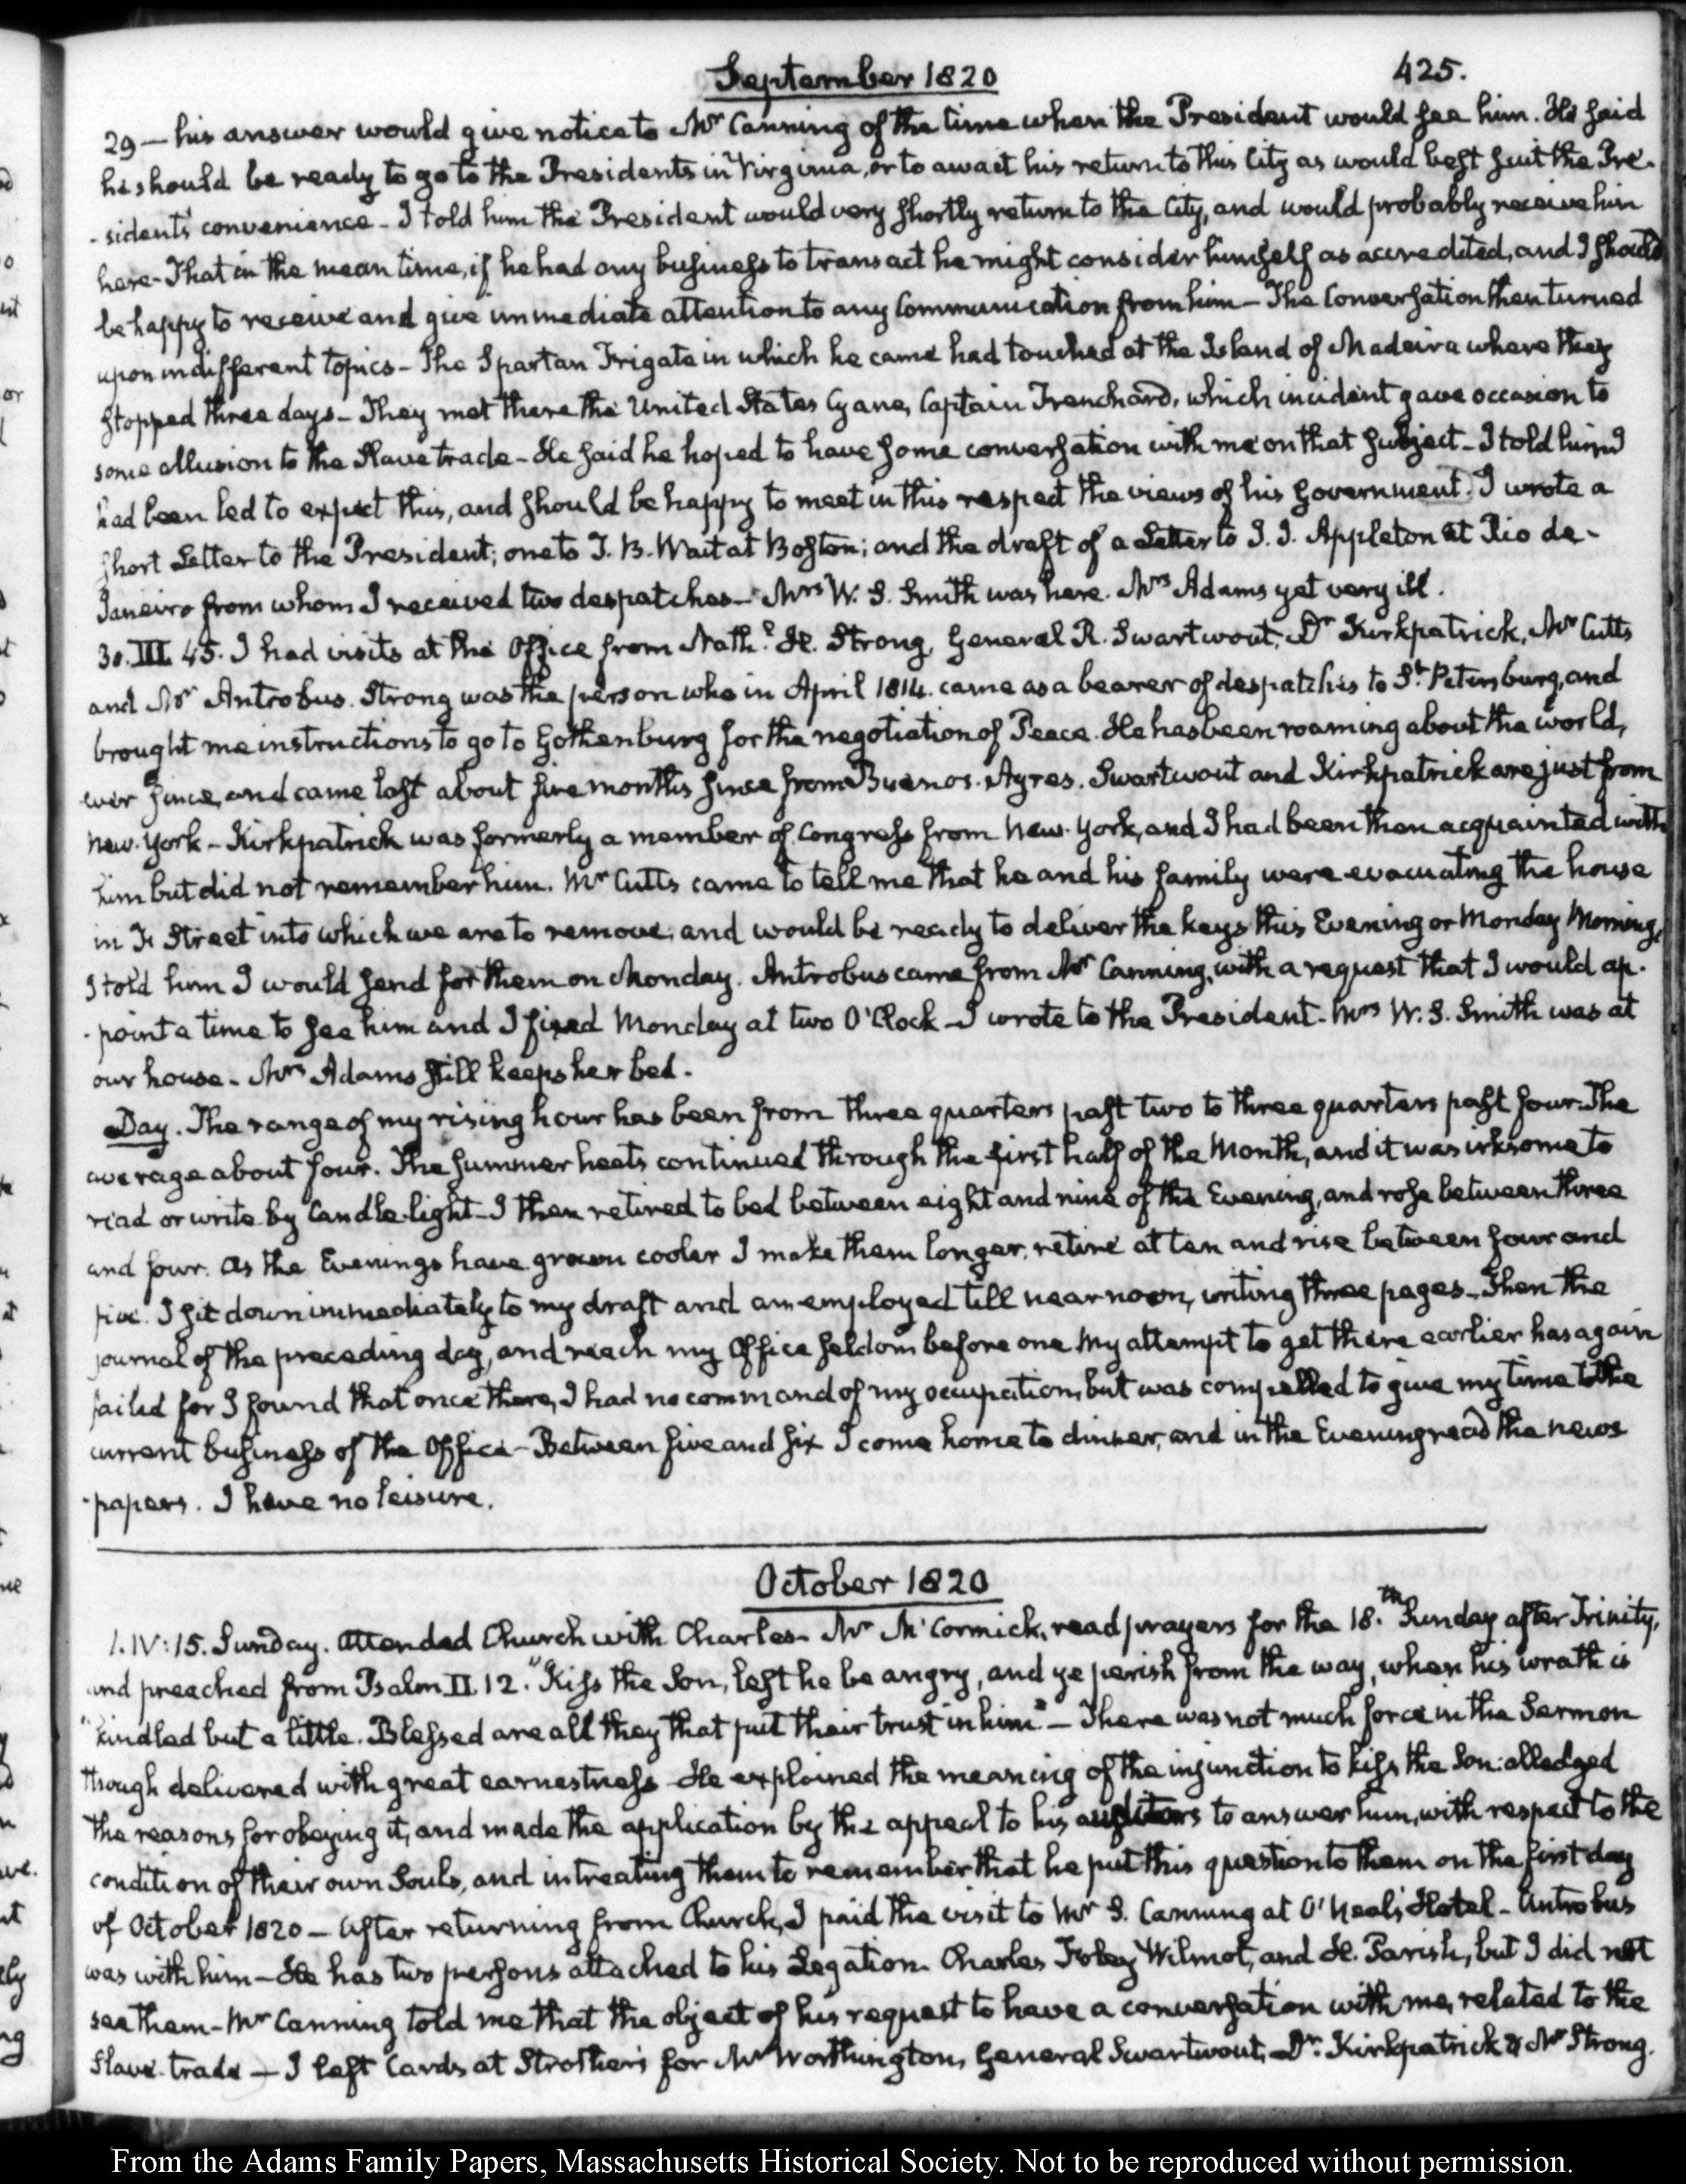 September 1820
425.
29 — his answer would give notice to Mr Canning of the time when the President would see him. He said
he should be ready to go to the Presidents in Virginia, or to await his return to this City as would best suit the Pre-
-sidents' convenience - I told him the President would very shortly return to the City, and would probably receive him
here - That in the mean time, if he had any business to transact he might consider himself as accredited, and I should
be happy to receive and give immediate attention to any Communication from him - The Conversation then turned
upon indifferent topics - The Spartan Frigate in which he came had touched at the Island of Madeira where they
stopped three days - They met there the United States Cyane, Captain Trenchard, which incident gave occasion to
some allusion to the Slave trade - He said he hoped to have some conversation with me on that subject - I told him I
had been led to expect this, and should be happy to meet in this respect the views of his Government. I wrote a
short Letter to the President; one to T. B. Wait at Boston; and the draft of a Letter to J. J. Appleton at Rio de-
Janeiro from whom I received two despatches - Mrs W. S. Smith was here. Mrs Adams yet very ill.
30. III. 45. I had visits at the Office from Nathl. H. Strong, General R. Swartwout, Dr Kirkpatrick, Mr Cutts
and Mr Antrobus. Strong was the person who in April 1814. came as a bearer of despatches to St Petersburg, and
brought me instructions to go to Gothenburg for the negotiation of Peace. He has been roaming about the world,
ever since, and came last about five months since from Buenos-Ayres. Swartwout and Kirkpatrick are just from
New-York - Kirkpatrick was formerly a member of Congress from New-York, and I had been then acquainted with
him but did not remember him. Mr Cutts came to tell me that he and his family were evacuating the house
in F. Street into which we are to remove; and would be ready to deliver the keys this Evening or Monday Morning,
I told him I would send for them on Monday. Antrobus came from Mr Canning, with a request that I would ap-
-point a time to see him and I fixed Monday at two O'Clock - I wrote to the President - Mrs W. S. Smith was at
our house - Mrs Adams still keeps her bed.
Day. The range of my rising hour has been from three quarters past two to three quarters past four. The
average about four. The summer heats continued through the first half of the Month, and it was irksome to
read or write by Candle-light - I then retired to bed between eight and nine of the Evening, and rose between three
and four. As the Evenings have grown cooler I make them longer, retire at ten and rise between four and
five. I sit down immediately to my draft and am employed till near noon, writing three pages - Then the
journal of the preceding day, and reach my Office seldom before one My attempt to get there earlier has again
failed for I found that once there, I had no command of my occupation, but was compelled to give my time to the
current business of the Office - Between five and six I come home to dinner, and in the Evening read the news
-papers. I have no leisure.
October 1820
1. IV: 15. Sunday. Attended Church with Charles - Mr McCormick, read prayers for the 18.th Sunday after Trinity,
and preached from Psalm II. 12. "Kiss the Son, lest he be angry, and ye perish from the way, when his wrath is
"kindled but a little. Blessed are all they that put their trust in him" - There was not much force in the Sermon
though delivered with great earnestness - He explained the meaning of the injunction to kiss the Son: alledged
the reasons for obeying it, and made the application by the appeal to his auditors to answer him, with respect to the
condition of their own Souls, and intreating them to remember that he put this question to them on the first day
of October 1820 — After returning from Church, I paid the visit to Mr S. Canning at O'Neal's Hotel - Antrobus
was with him - He has two persons attached to his Legation. Charles Wilmot, and H. Parish, but I did not
see them - Mr Canning told me that the object of his request to have a conversation with me, related to the
Slave-trade — I left Cards at Strother's for Mr Worthington, General Swartwout, Dr. Kirkpatrick & Mr Strong.
From the Adams Family Papers, Massachusetts Historical Society. Not to be reproduced without permission.